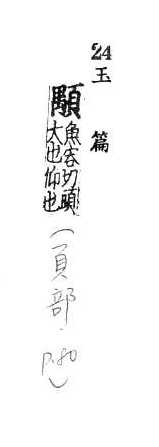 24
玉篇
顒
魚容切頭
大也仰也
(頁部. p.80)